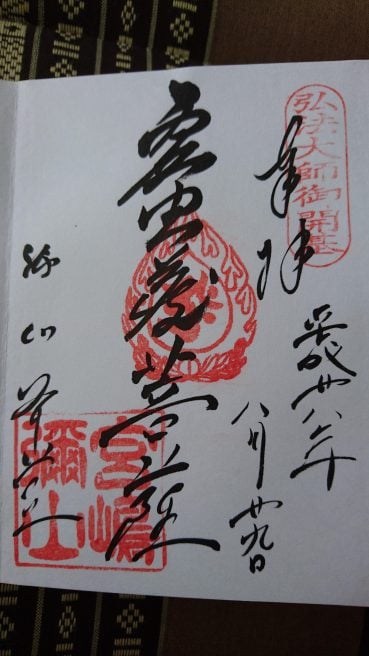 弘法大師御開基
奉拝
平成廿八年
八月廿九日
虚空蔵菩薩
宮嶋
彌山
弥山本堂